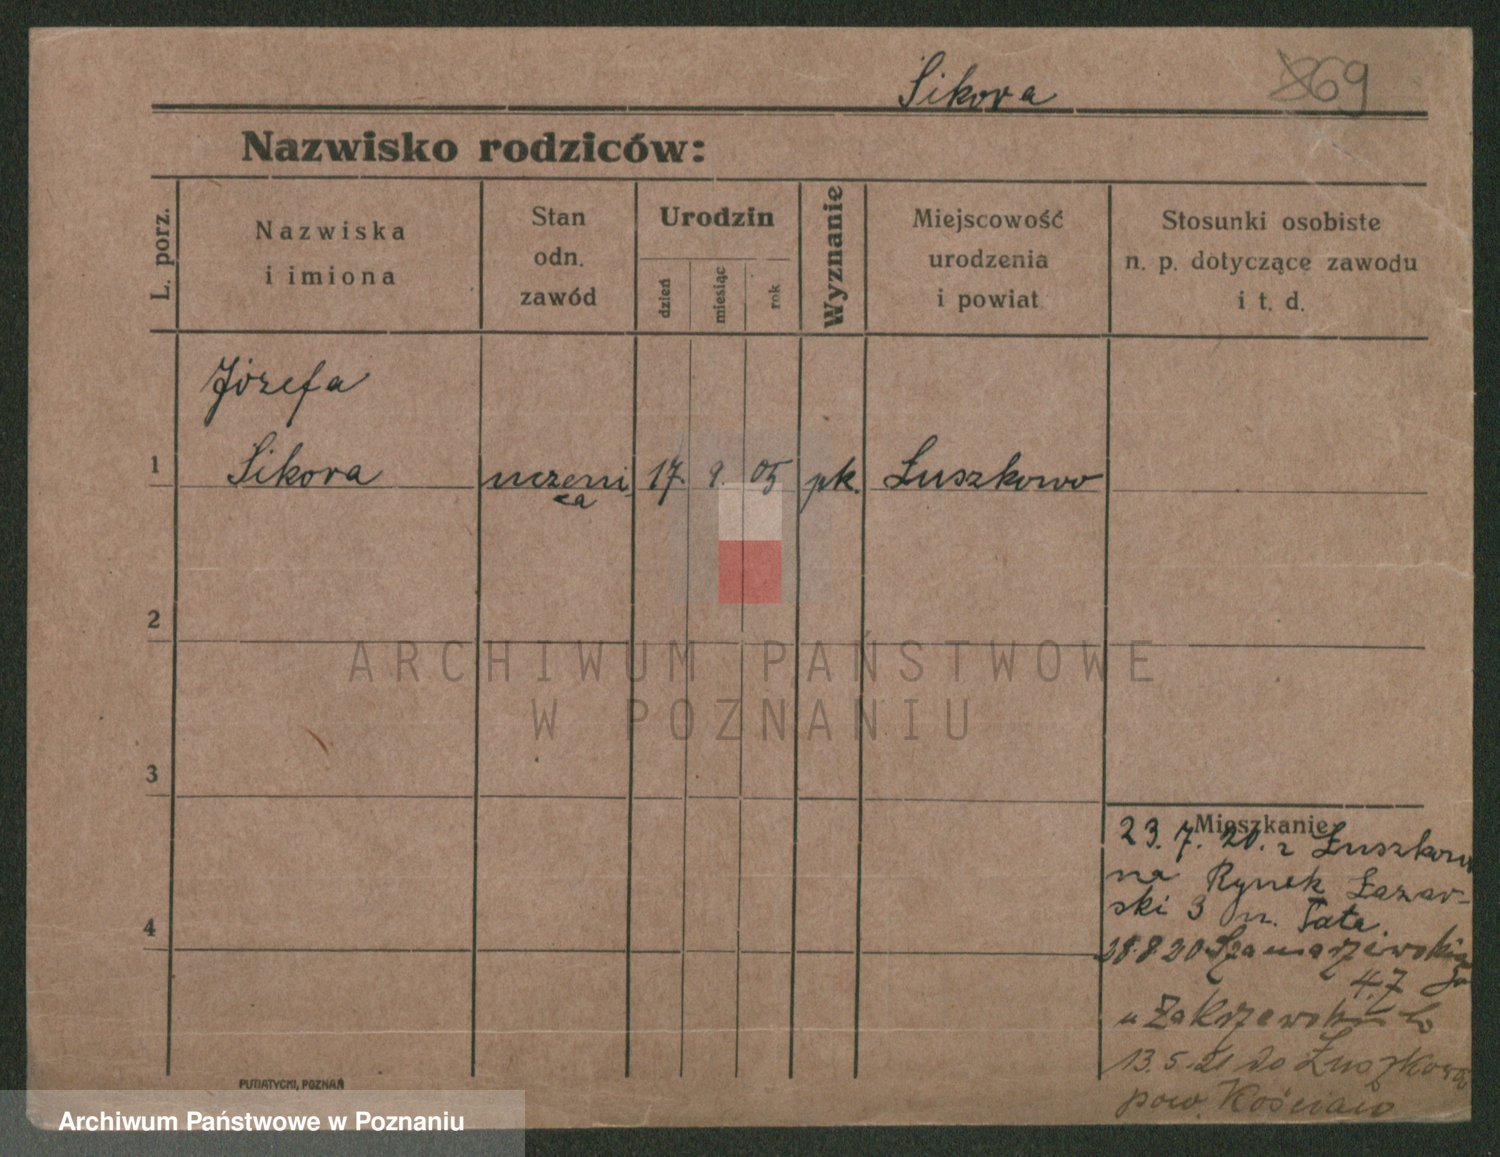 Sikora
869
Nazwisko rodziców:
L. porz.
Nazwiska
i imiona
Stan
odn.
zawód
Urodzin
dzień
miesiąc
rok
Wyznanie
Miejscowość
urodzenia
i powiat
Stosunki osobiste
n. p. dotyczące zawodu
i t. d.
Józefa
1 Sikora uczeni 17. 9. 05 pk. Łuszkowo
ca
2
3
4
Mieszkanie
23. 7. 20. z Łuszkowa
na Rynek Łazar-
ski 3 u. Tata.
28.8 20 Szamarzewskiego
47
u Zakrzewski
13.5.21 do Łuszkowo
pow. Kościan
PUTIATYCKI, POZNAŃ
ARCHIWUM PAŃSTWOWE
W POZNANIU
Archiwum Państwowe w Poznaniu